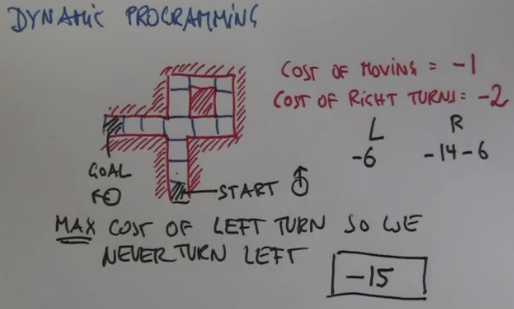 DYNAMIC PROGRAMMING
COST OF MOVING = -1
COST OF RIGHT TURNS = -2
L R
-6 -14-6
GOAL
START
MAX COST OF LEFT TURN SO WE
NEVER TURN LEFT
-15